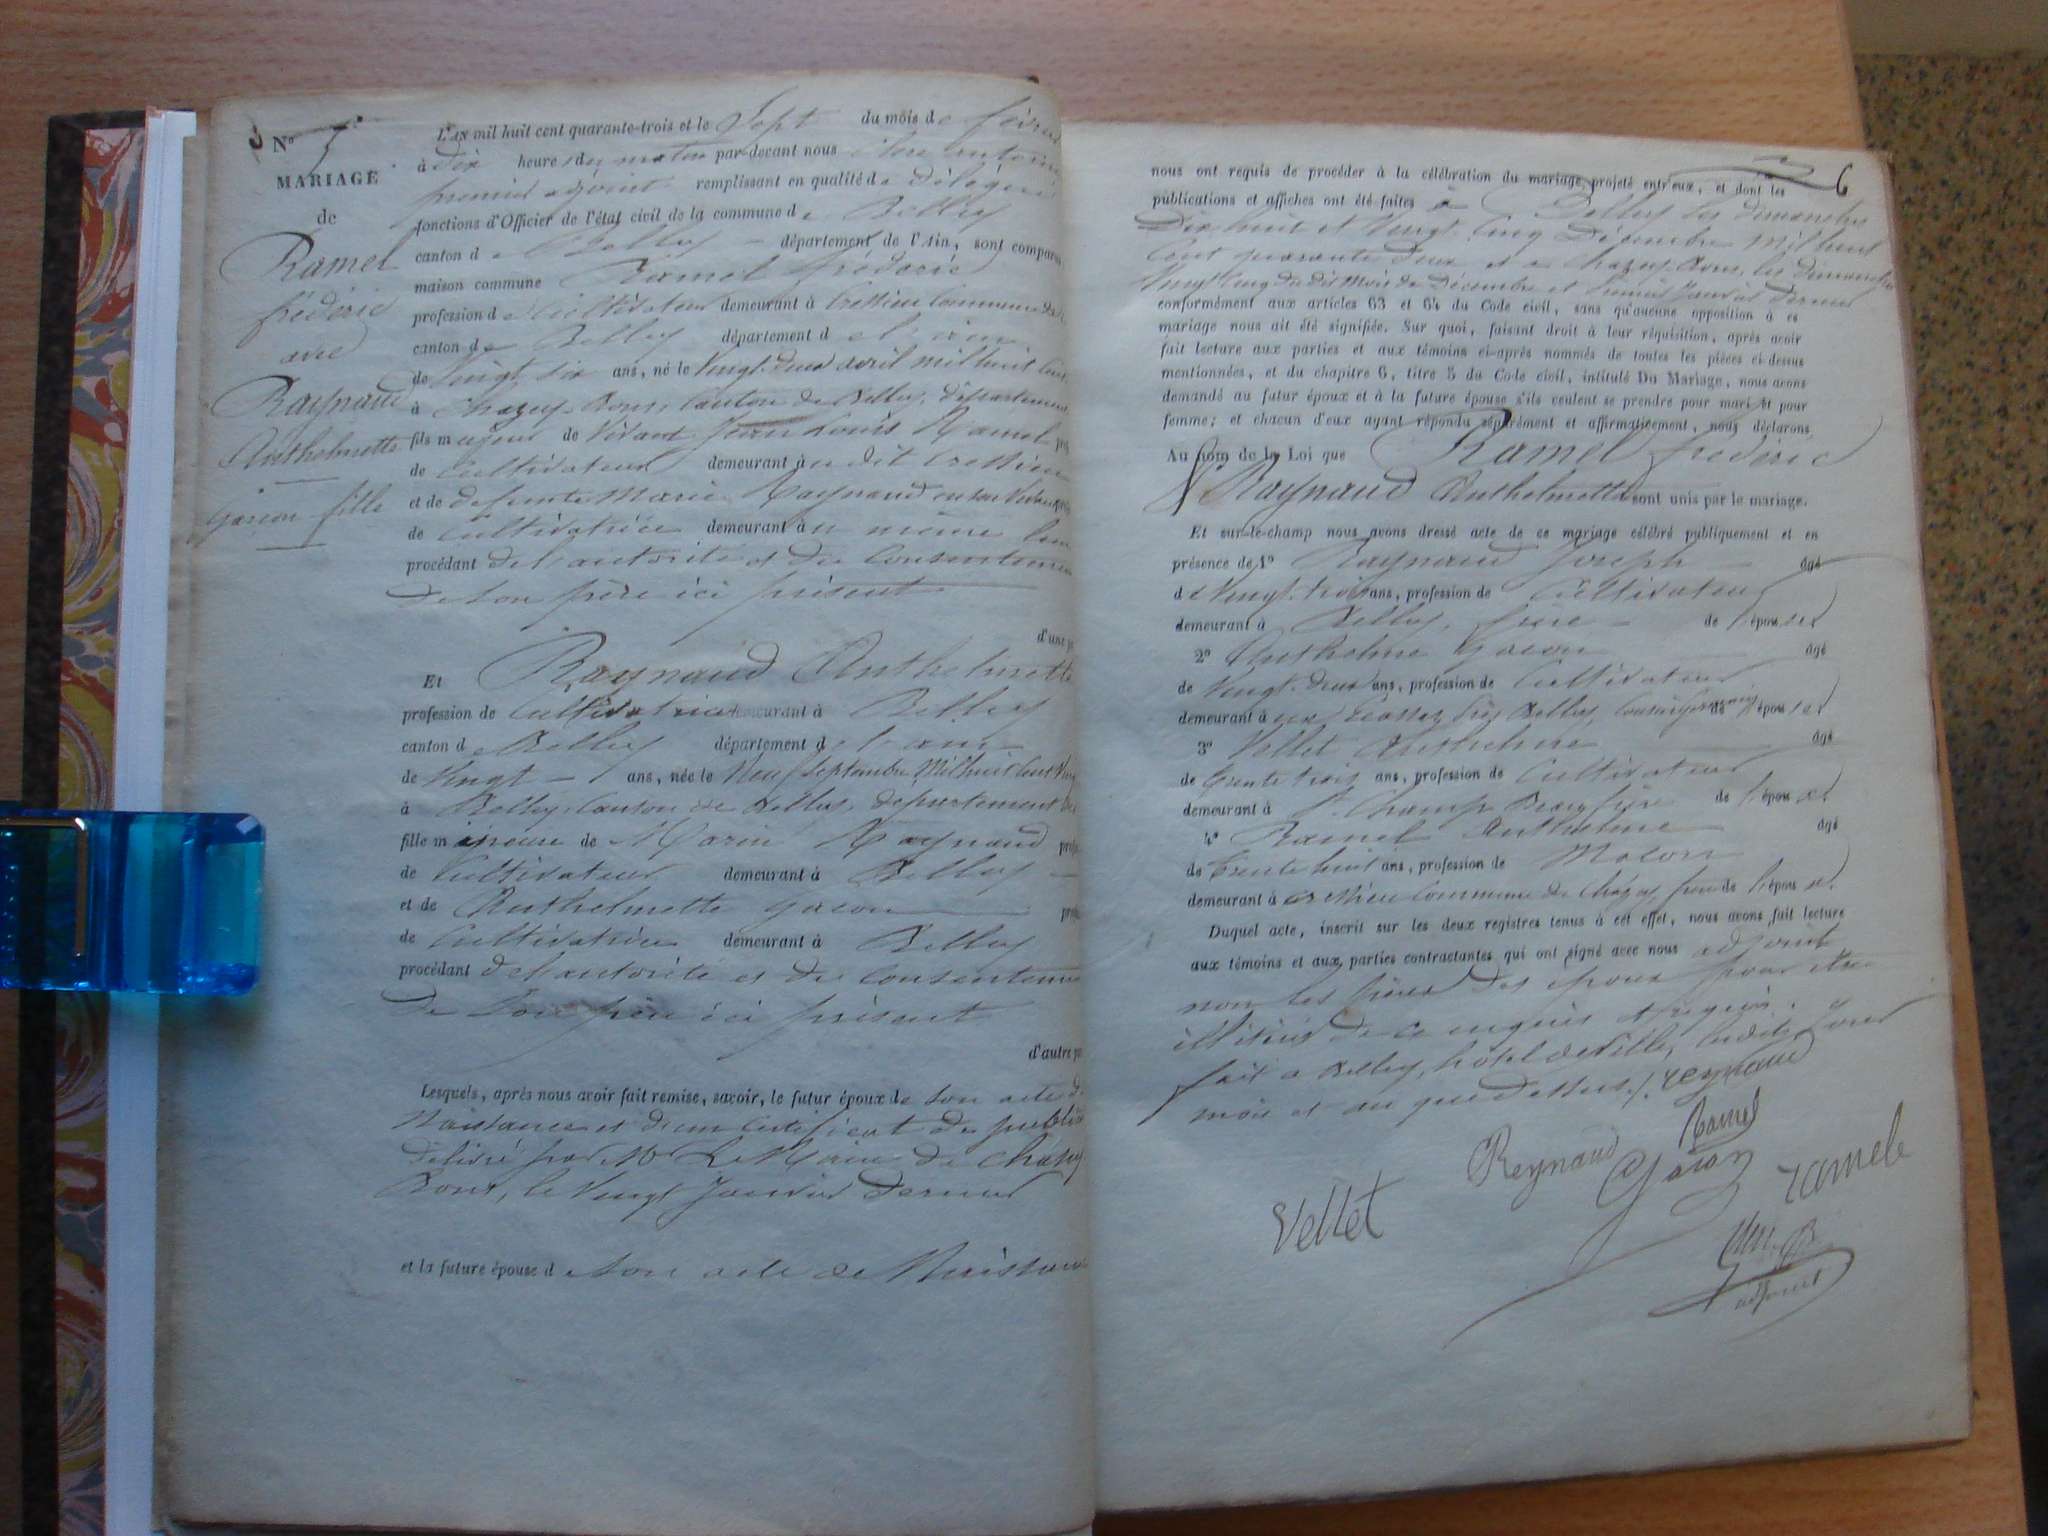 N° 7
MARIAGE
de
Ramel
frédéric
avec
Raynaud
Anthelmette
garçon fille
L'an mil huit cent quarante-trois et le Sept du mois de février
à dix heures du matin par-devant nous
premier adjoint remplissant en qualité de délégué
fonctions d'Officier de l'état civil de la commune de Belley
canton de Belley département de l'Ain, sont comparus
maison commune Ramel frédéric
profession de Cultivateur demeurant à Cressieu Commune de
canton de Belley département de l'ain
de Vingt six ans, né le Vingt deux avril mil huit cent
à Chazey-Bons, Canton de Belley, département
fils majeur de Vivant Jean Louis Ramel
de Cultivateur demeurant au dit Cressieu
et de defunte Marie Raynaud en son Vivant
de Cultivatrice demeurant au même lieu
procédant de l'autorité et du Consentement
de son père ici présent
d'une
Et Raynaud Anthelmette
profession de Cultivatrice demeurant à Belley
canton de Belley département de l'ain
de Vingt ans, née le Neuf Septembre Mil huit Cent Vingt
à Belley, Canton de Belley, département de
fille mineure de Marin Raynaud
de Cultivateur demeurant à Belley
et de Anthelmette gacon
de Cultivatrice demeurant à Belley
procédant de l'autorité et du Consentement
de Son père ici présent
d'autre
Lesquels, après nous avoir fait remise, savoir, le futur époux de son acte de
Naissance et d'un Certificat de publication
délivré par Mr Le Maire de Chazey
Bons, le Vingt Janvier dernier
et la future épouse de son acte de Naissance
6
nous ont requis de procéder à la célébration du mariage projeté entr'eux, et dont les
publications et affiches ont été faites à Belley les dimanches
Dix huit et Vingt Cinq Décembre Mil huit
Cent quarante deux et à Chazey-Bons, les dimanches
Vingt Cinq du dit Mois de Décembre et premier Janvier dernier
conformément aux articles 63 et 64 du Code civil, sans qu'aucune opposition à ce
mariage nous ait été signifiée. Sur quoi, faisant droit à leur réquisition, après avoir
fait lecture aux parties et aux témoins ci-après nommés de toutes les pièces ci-dessus
mentionnées, et du chapitre 6, titre 5 du Code civil, intitulé Du Mariage, nous avons
demandé au futur époux et à la future épouse s'ils veulent se prendre pour mari et pour
femme; et chacun d'eux ayant répondu séparément et affirmativement, nous déclarons
Au nom de la Loi que Ramel frédéric
& Raynaud Anthelmette sont unis par le mariage.
Et sur-le-champ nous avons dressé acte de ce mariage célébré publiquement et en
présence de 1° Raynaud Joseph âgé
de Vingt trois ans, profession de Cultivateur
demeurant à Belley, frère de l'épouse
2° Anthelme gacon âgé
de Vingt deux ans, profession de Cultivateur
demeurant près Belley, Cousin germain de l'épouse
3° Vellet Anthelme âgé
de trente trois ans, profession de Cultivateur
demeurant à St Champ Beau frère de l'époux
4° Ramel Anthelme âgé
de trente huit ans, profession de Maçon
demeurant à Cressieu Commune de Chazey, frère de l'époux
Duquel acte, inscrit sur les deux registres tenus à cet effet, nous avons fait lecture
aux témoins et aux parties contractantes qui ont signé avec nous adjoint
non les pères des époux pour être
illitérés de ce enquis et requis.
fait à Belley, hôtel de Ville, les dits jour
mois et an que dessus ./. reynaud
Ramel
Reynaud
Gacon
ramele
Vellet
adjoint